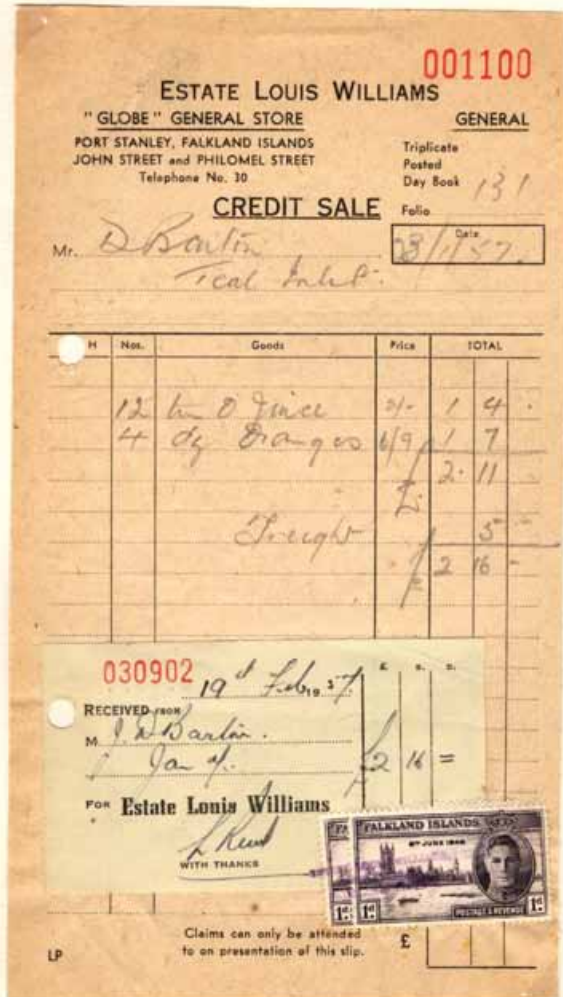 001100
ESTATE LOUIS WILLIAMS
"GLOBE" GENERAL STORE GENERAL
PORT STANLEY, FALKLAND ISLANDS
JOHN STREET and PHILOMEL STREET
Telephone No. 30
Triplicate
Posted
Day Book 131
CREDIT SALE Folio
Date
23/1/57.
Mr. D Barton
Teal Inlet.
H Nos. Goods Price TOTAL
12 tin O Juice 2/- 1 4 -
4 dz Oranges 6/9 1 7
£ 2 . 11
Freight 5 -
£ 2 16 -
030902
19th Feb 1957
£ s. D.
RECEIVED FROM
M J. D Barton.
Jan a/c. £2 16 =
FOR Estate Louis Williams
WITH THANKS
FALKLAND ISLANDS
8TH JUNE 1946
1d. POSTAGE & REVENUE 1d.
Claims can only be attended
to on presentation of this slip. £
LP